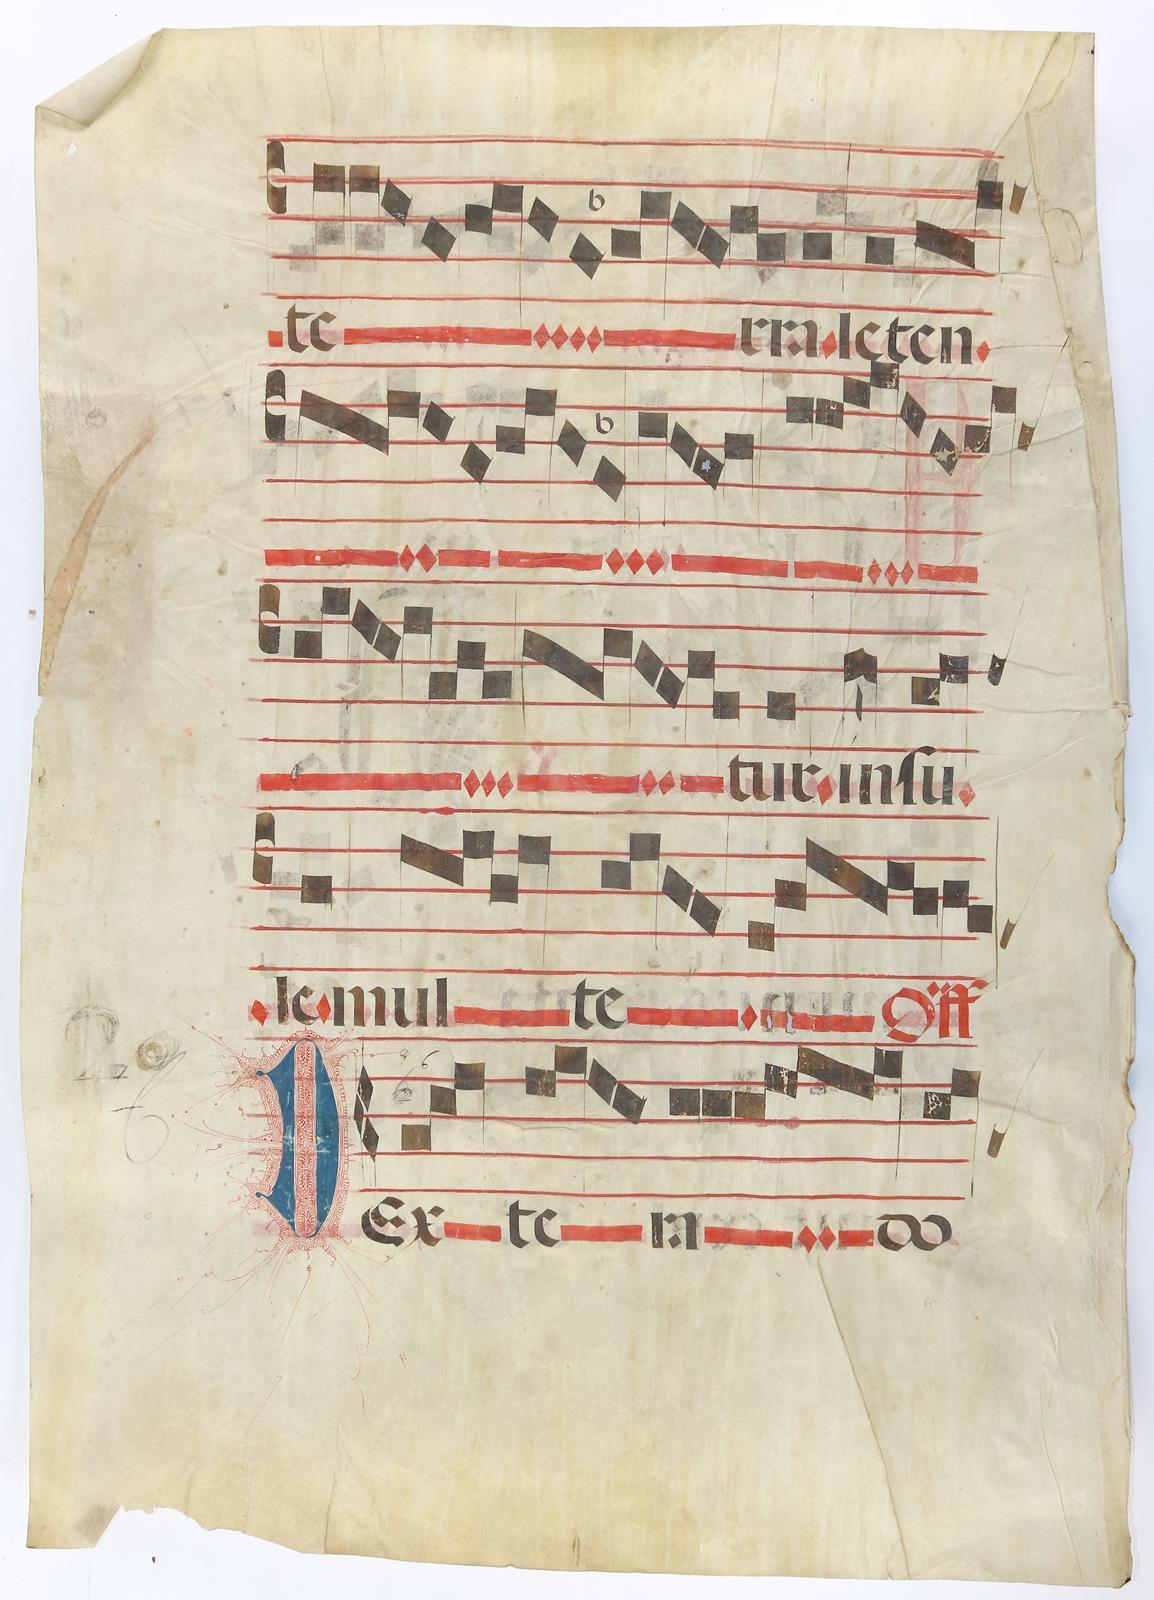 b
te rra leten
b
tur insu
le mul te Off
D Ex te ra do